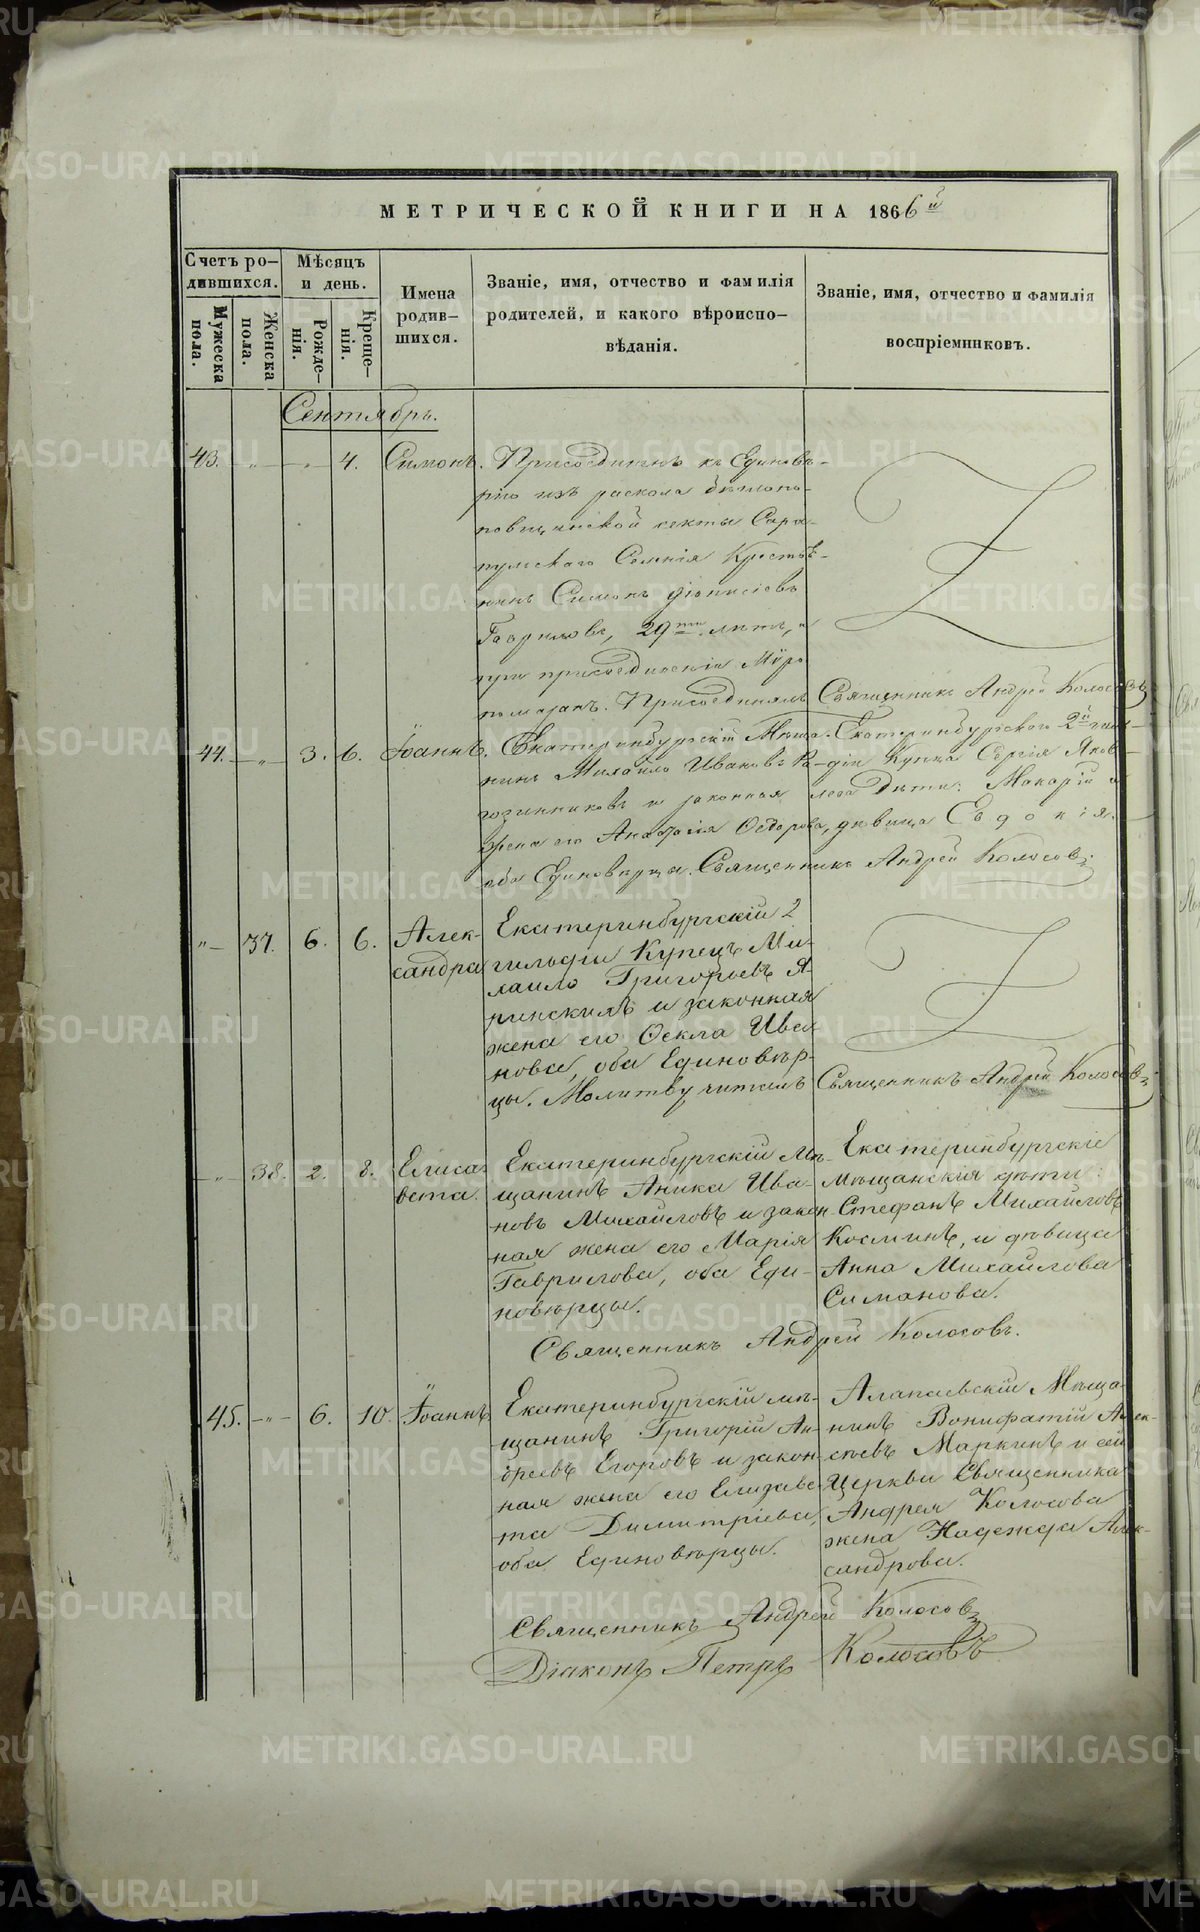 МЕТРИЧЕСКОЙ КНИГИ НА 1866й
Счетъ ро-
дившихся.
Мужеска
пола.
Женска
пола.
Мѣсяцъ
и день.
Рожде-
нія.
Креще-
нія.
Имена
родив-
шихся.
Званіе, имя, отчество и фамилія
родителей, и какого вѣроиспо-
вѣданія.
Званіе, имя, отчество и фамилія
воспріемниковъ.
Сентябрь.
43. -„- -„- 4. Симонъ.
Присоединенъ къ Единовѣ-
рію изъ раскола
секты Сара-
пульскаго Селенія Крестья-
нинъ Симонъ Діонисіевъ
Гавриловъ, 29ти лѣтъ, и
при присоединеніи Мѵро
помазанъ. Присоединялъ Священникъ Андрей Колосовъ
44. -„- 3. 6. Іоаннъ.
Екатеринбургскій Мѣща-
нинъ Михайло Ивановъ Ро-
гозинниковъ и законная
жена его Анастасія Ѳедорова,
оба Единовѣрцы.
Екатеринбургскаго 2й гиль-
діи Купца Сергія Яков-
лева Дѣти: Макарій и
дѣвица Евдокія.
Священникъ Андрей Колосовъ
„- 37. 6. 6. Алек-
сандра
Екатеринбургскій 2
гильдіи Купецъ Ми-
хаило Григорьевъ Я-
ринскихъ и законная
жена его Ѳекла Ива-
нова, оба Единовѣр-
цы. Молитву читалъ Священникъ Андрей Колосовъ
-„- 38. 2. 8. Елиса-
вета.
Екатеринбургскій Мѣ-
щанинъ Аника Ива-
новъ Михайловъ и закон-
ная жена его Марія
Гаврилова, оба Еди-
новѣрцы.
Екатеринбургскіе
Мѣщанскія дѣти:
Стефанъ Михайловъ
Косминъ, и дѣвица
Анна Михайлова
Симанова.
Священникъ Андрей Колосовъ.
45. -„- 6. 10. Іоаннъ
Екатеринбургскій мѣ-
щанинъ Григорій Ан-
дреевъ Егоровъ и закон-
ная жена его Елизаве-
та Димитріева,
оба Единовѣрцы.
Алапаевскій Мѣща-
нинъ Вонифатій Алек-
сѣевъ Маркинъ и сей
Церкви Священника
Андрея Колосова
жена Надежда Алек-
сандрова.
Священникъ Андрей Колосовъ
Діаконъ Петръ Колосовъ
METRIKI.GASO-URAL.RU